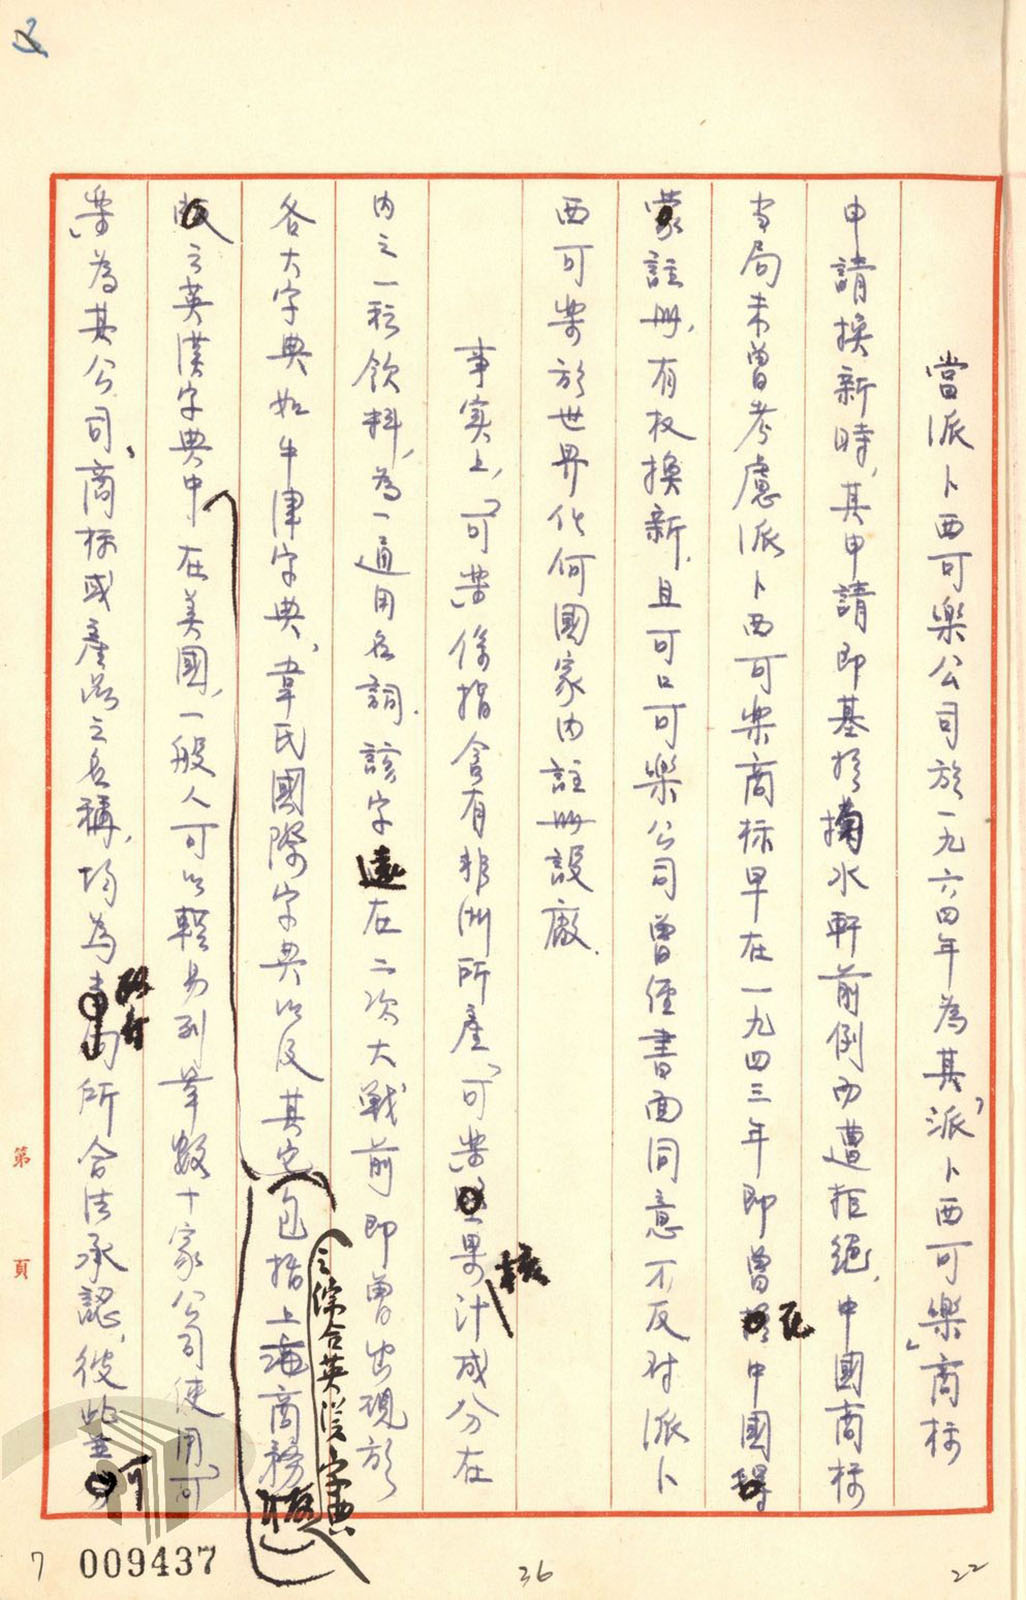 當派卜西可樂公司於一九六四年為其「派卜西可樂」商标
申請換新時，其申請即基於掬水軒前例而遭拒絕，中國商标
当局未曾考慮派卜西可樂商标早在一九四三年即曾在中國
蒙註册，有权換新，且可口可樂公司曾經書面同意不反对派卜
西可樂於世界任何國家內註册設廠．
事实上，「可樂」係指含有非洲所產「可樂」果汁成分在
核
內之一种飲料，為一通用名詞．該字遠在二次大戰前即曾出現於
各大字典如牛津字典、韋氏國際字典以及其它包括上海商務
之綜合英漢字典
版之英漢字典中 在美國，一般人可以輕易列舉數十家公司使用「可
樂」為其公司、商标或產品之名稱，均為 所合法承認，彼此並
政府
可
第 頁
7 009437
36
22